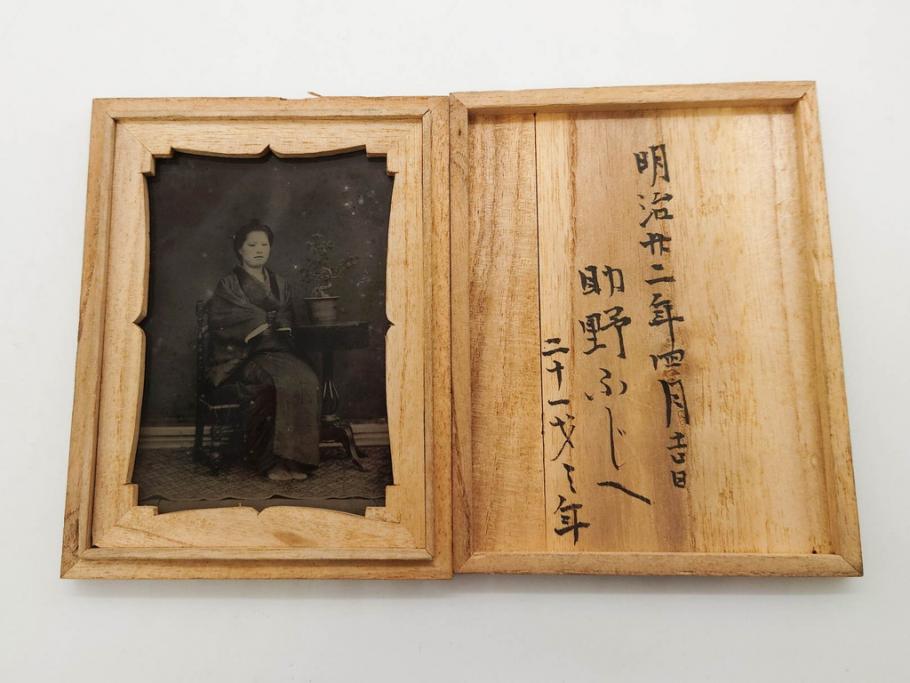 明治廿二年四月吉日
助野ふじへ
二十一才ミ年